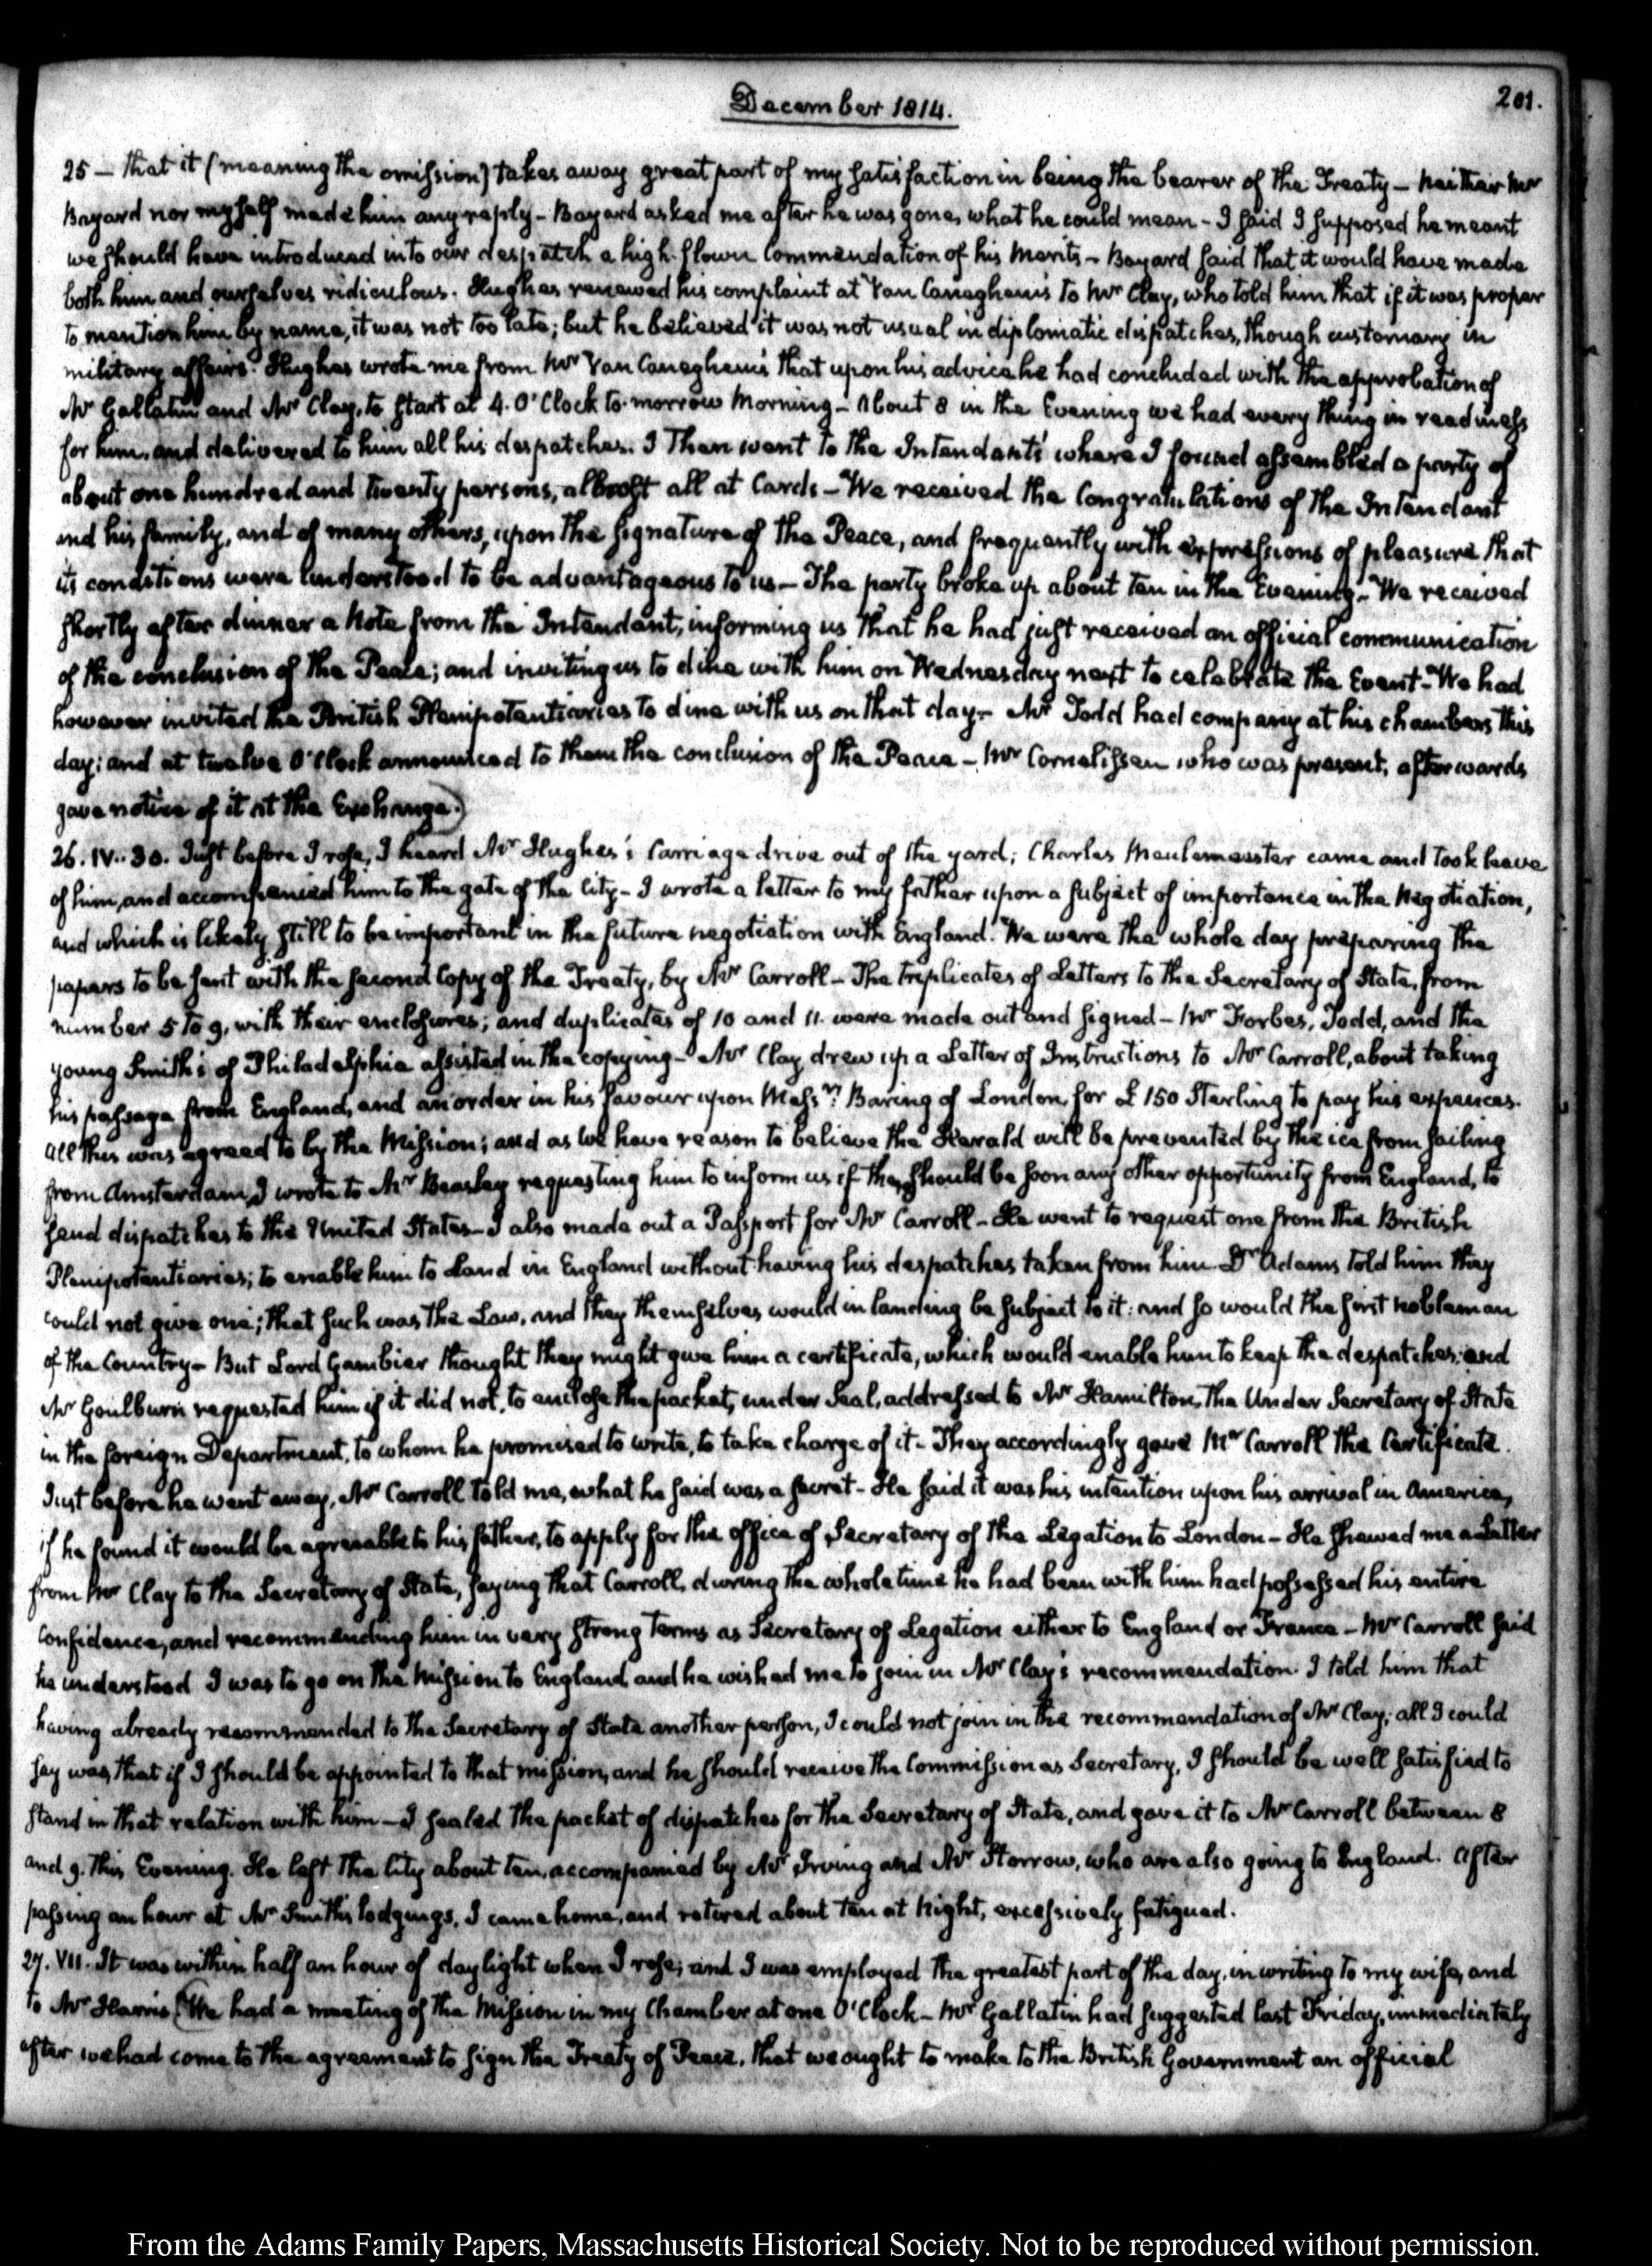 December 1814.
201.
25 — that it (meaning the omission) takes away great part of my satisfaction in being the bearer of the Treaty — Neither Mr
Bayard nor myself made him any reply — Bayard asked me after he was gone, what he could mean — I said I supposed he meant
we should have introduced into our despatch a high flown Commendation of his Merits — Bayard said that it would have made
both him and ourselves ridiculous. Hughes renewed his complaint at Van Caneghem's to Mr Clay, who told him that if it was proper
to mention him by name, it was not too late; but he believed it was not usual in diplomatic dispatches, though customary in
military affairs. Hughes wrote me from Mr Van Caneghem's that upon his advice he had concluded with the approbation of
Mr Gallatin and Mr Clay, to start at 4. O'Clock to-morrow Morning — About 8 in the Evening we had every thing in readiness
for him, and delivered to him all his despatches. I then went to the Intendant's where I found assembled a party of
about one hundred and twenty persons, almost all at Cards — We received the Congratulations of the Intendant
and his family, and of many others, upon the signature of the Peace, and frequently with expressions of pleasure that
its conditions were understood to be advantageous to us — The party broke up about ten in the Evening — We received
shortly after dinner a Note from the Intendant, informing us that he had just received an official communication
of the conclusion of the Peace; and inviting us to dine with him on Wednesday next to celebrate the Event — We had
however invited the British Plenipotentiaries to dine with us on that day — Mr Todd had company at his chambers this
day; and at twelve O'Clock announced to them the conclusion of the Peace — Mr Cornelissen who was present, afterwards
gave notice of it at the Exchange.)
26. IV..30. Just before I rose, I heard Mr Hughes's Carriage drive out of the yard; Charles Meulemeester came and took leave
of him, and accompanied him to the gate of the City — I wrote a letter to my father upon a subject of importance in the Negotiation,
and which is likely still to be important in the future negotiation with England. We were the whole day preparing the
papers to be sent with the second Copy of the Treaty, by Mr Carroll — The triplicates of Letters to the Secretary of State, from
number 5 to 9, with their enclosures; and duplicates of 10 and 11. were made out and signed — Mr Forbes, Todd, and the
young Smith's of Philadelphia assisted in the copying — Mr Clay drew up a Letter of Instructions to Mr Carroll, about taking
his passage from England, and an order in his favour upon Messrs Baring of London, for £150 Sterling to pay his expences.
All this was agreed to by the Mission; and as we have reason to believe the Herald will be prevented by the ice from sailing
from Amsterdam, I wrote to Mr Beasley requesting him to inform us if there should be soon any other opportunity from England, to
send dispatches to the United States — I also made out a Passport for Mr Carroll — He went to request one from the British
Plenipotentiaries; to enable him to land in England without having his despatches taken from him. Dr Adams told him they
could not give one; that such was the Law, and they themselves would in landing be subject to it: and so would the first nobleman
of the Country — But Lord Gambier thought they might give him a certificate, which would enable him to keep the despatches; and
Mr Goulburn requested him if it did not, to enclose the packet, under Seal, addressed to Mr Hamilton, the Under Secretary of State
in the foreign Department, to whom he promised to write, to take charge of it — They accordingly gave Mr Carroll the Certificate.
Just before he went away, Mr Carroll told me, what he said was a secret — He said it was his intention upon his arrival in America,
if he found it would be agreeable to his father, to apply for the office of Secretary of the Legation to London — He shewed me a Letter
from Mr Clay to the Secretary of State, saying that Carroll, during the whole time he had been with him had possessed his entire
Confidence, and recommending him in very strong terms as Secretary of Legation either to England or France — Mr Carroll said
he understood I was to go on the Mission to England, and he wished me to join in Mr Clay's recommendation. I told him that
having already recommended to the Secretary of State another person, I could not join in the recommendation of Mr Clay; all I could
say was, that if I should be appointed to that mission, and he should receive the Commission as Secretary, I should be well satisfied to
stand in that relation with him — I sealed the packet of dispatches for the Secretary of State, and gave it to Mr Carroll between 8
and 9. this Evening. He left the City about ten, accompanied by Mr Irving and Mr Storrow, who are also going to England. After
passing an hour at Mr Smith's lodgings, I came home, and retired about ten at Night, excessively fatigued.
27. VII. It was within half an hour of daylight when I rose; and I was employed the greatest part of the day, in writing to my wife, and
to Mr Harris. (We had a meeting of the Mission in my Chamber at one O'Clock — Mr Gallatin had suggested last Friday, immediately
after we had come to the agreement to sign the Treaty of Peace, that we ought to make to the British Government an official
From the Adams Family Papers, Massachusetts Historical Society. Not to be reproduced without permission.